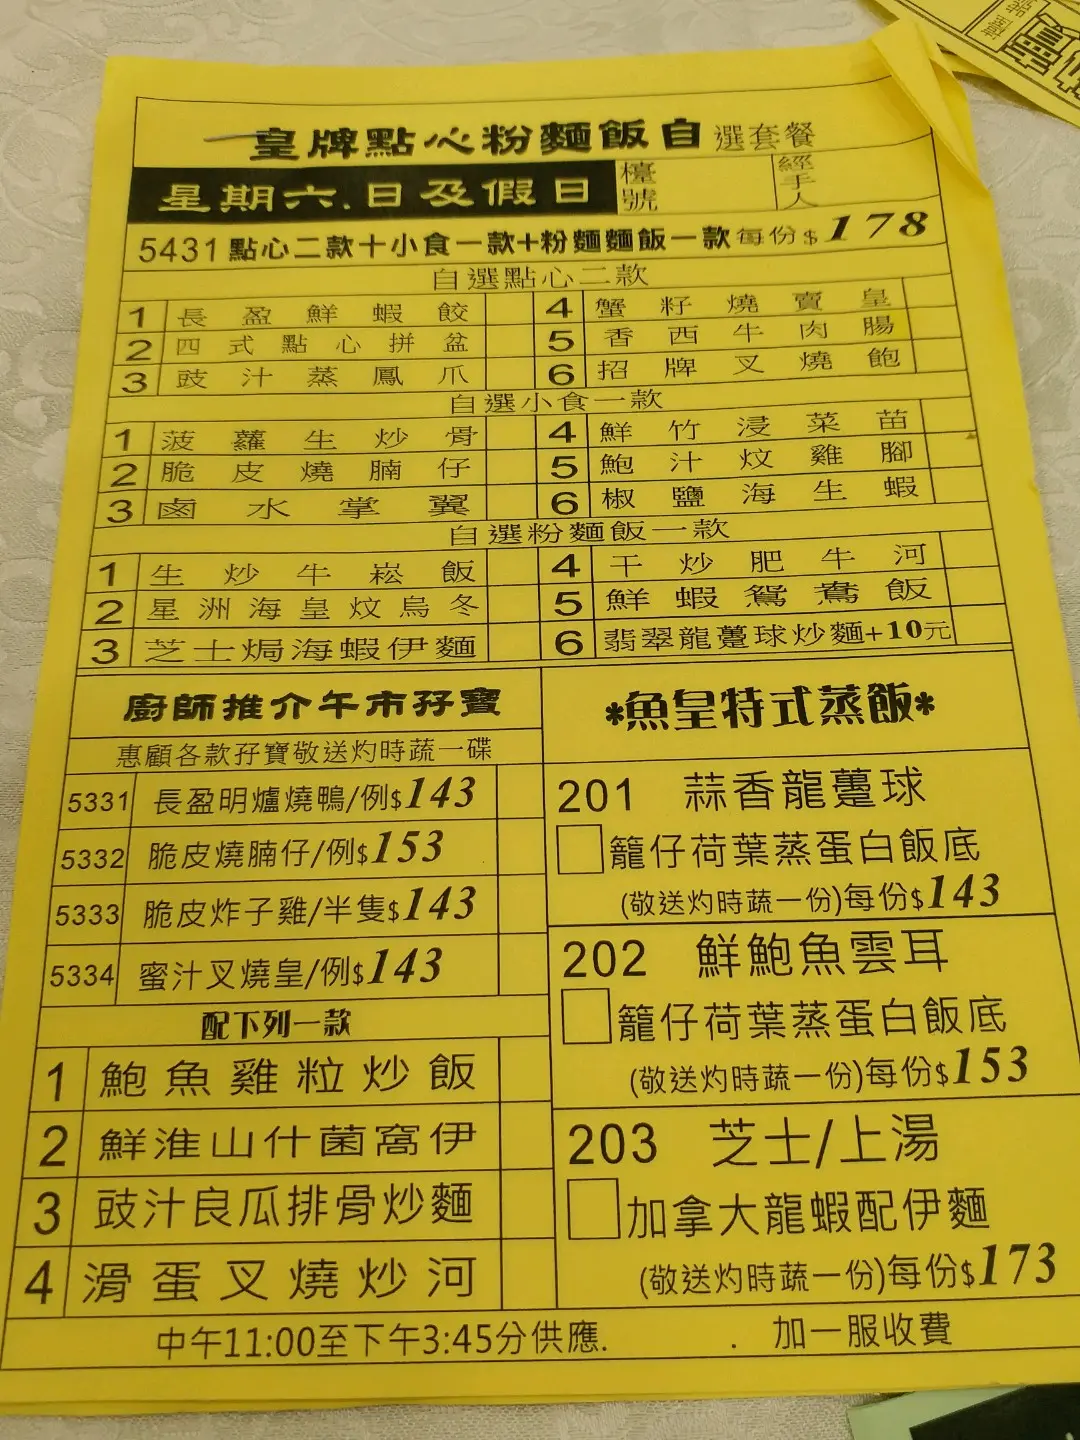 皇牌點心粉麵飯自選套餐
星期六.日及假日 檯號 經手人
5431點心二款十小食一款+粉麵麵飯一款每份$178
自選點心二款
1 長盈鮮蝦餃 4 蟹籽燒賣皇
2 四式點心拼盆 5 香西牛肉腸
3 豉汁蒸鳳爪 6 招牌叉燒飽
自選小食一款
1 菠蘿生炒骨 4 鮮竹浸菜苗
2 脆皮燒腩仔 5 鮑汁炆雞腳
3 鹵水掌翼 6 椒鹽海生蝦
自選粉麵飯一款
1 生炒牛崧飯 4 干炒肥牛河
2 星洲海皇炆烏冬 5 鮮蝦鴛鴦飯
3 芝士焗海蝦伊麵 6 翡翠龍躉球炒麵+10元
廚師推介午市孖寶
惠顧各款孖寶敬送灼時蔬一碟
5331 長盈明爐燒鴨/例$143
5332 脆皮燒腩仔/例$153
5333 脆皮炸子雞/半隻$143
5334 蜜汁叉燒皇/例$143
配下列一款
1 鮑魚雞粒炒飯
2 鮮淮山什菌窩伊
3 豉汁良瓜排骨炒麵
4 滑蛋叉燒炒河
*魚皇特式蒸飯*
201 蒜香龍躉球
籠仔荷葉蒸蛋白飯底
(敬送灼時蔬一份)每份$143
202 鮮鮑魚雲耳
籠仔荷葉蒸蛋白飯底
(敬送灼時蔬一份)每份$153
203 芝士/上湯
加拿大龍蝦配伊麵
(敬送灼時蔬一份)每份$173
中午11:00至下午3:45分供應. . 加一服收費